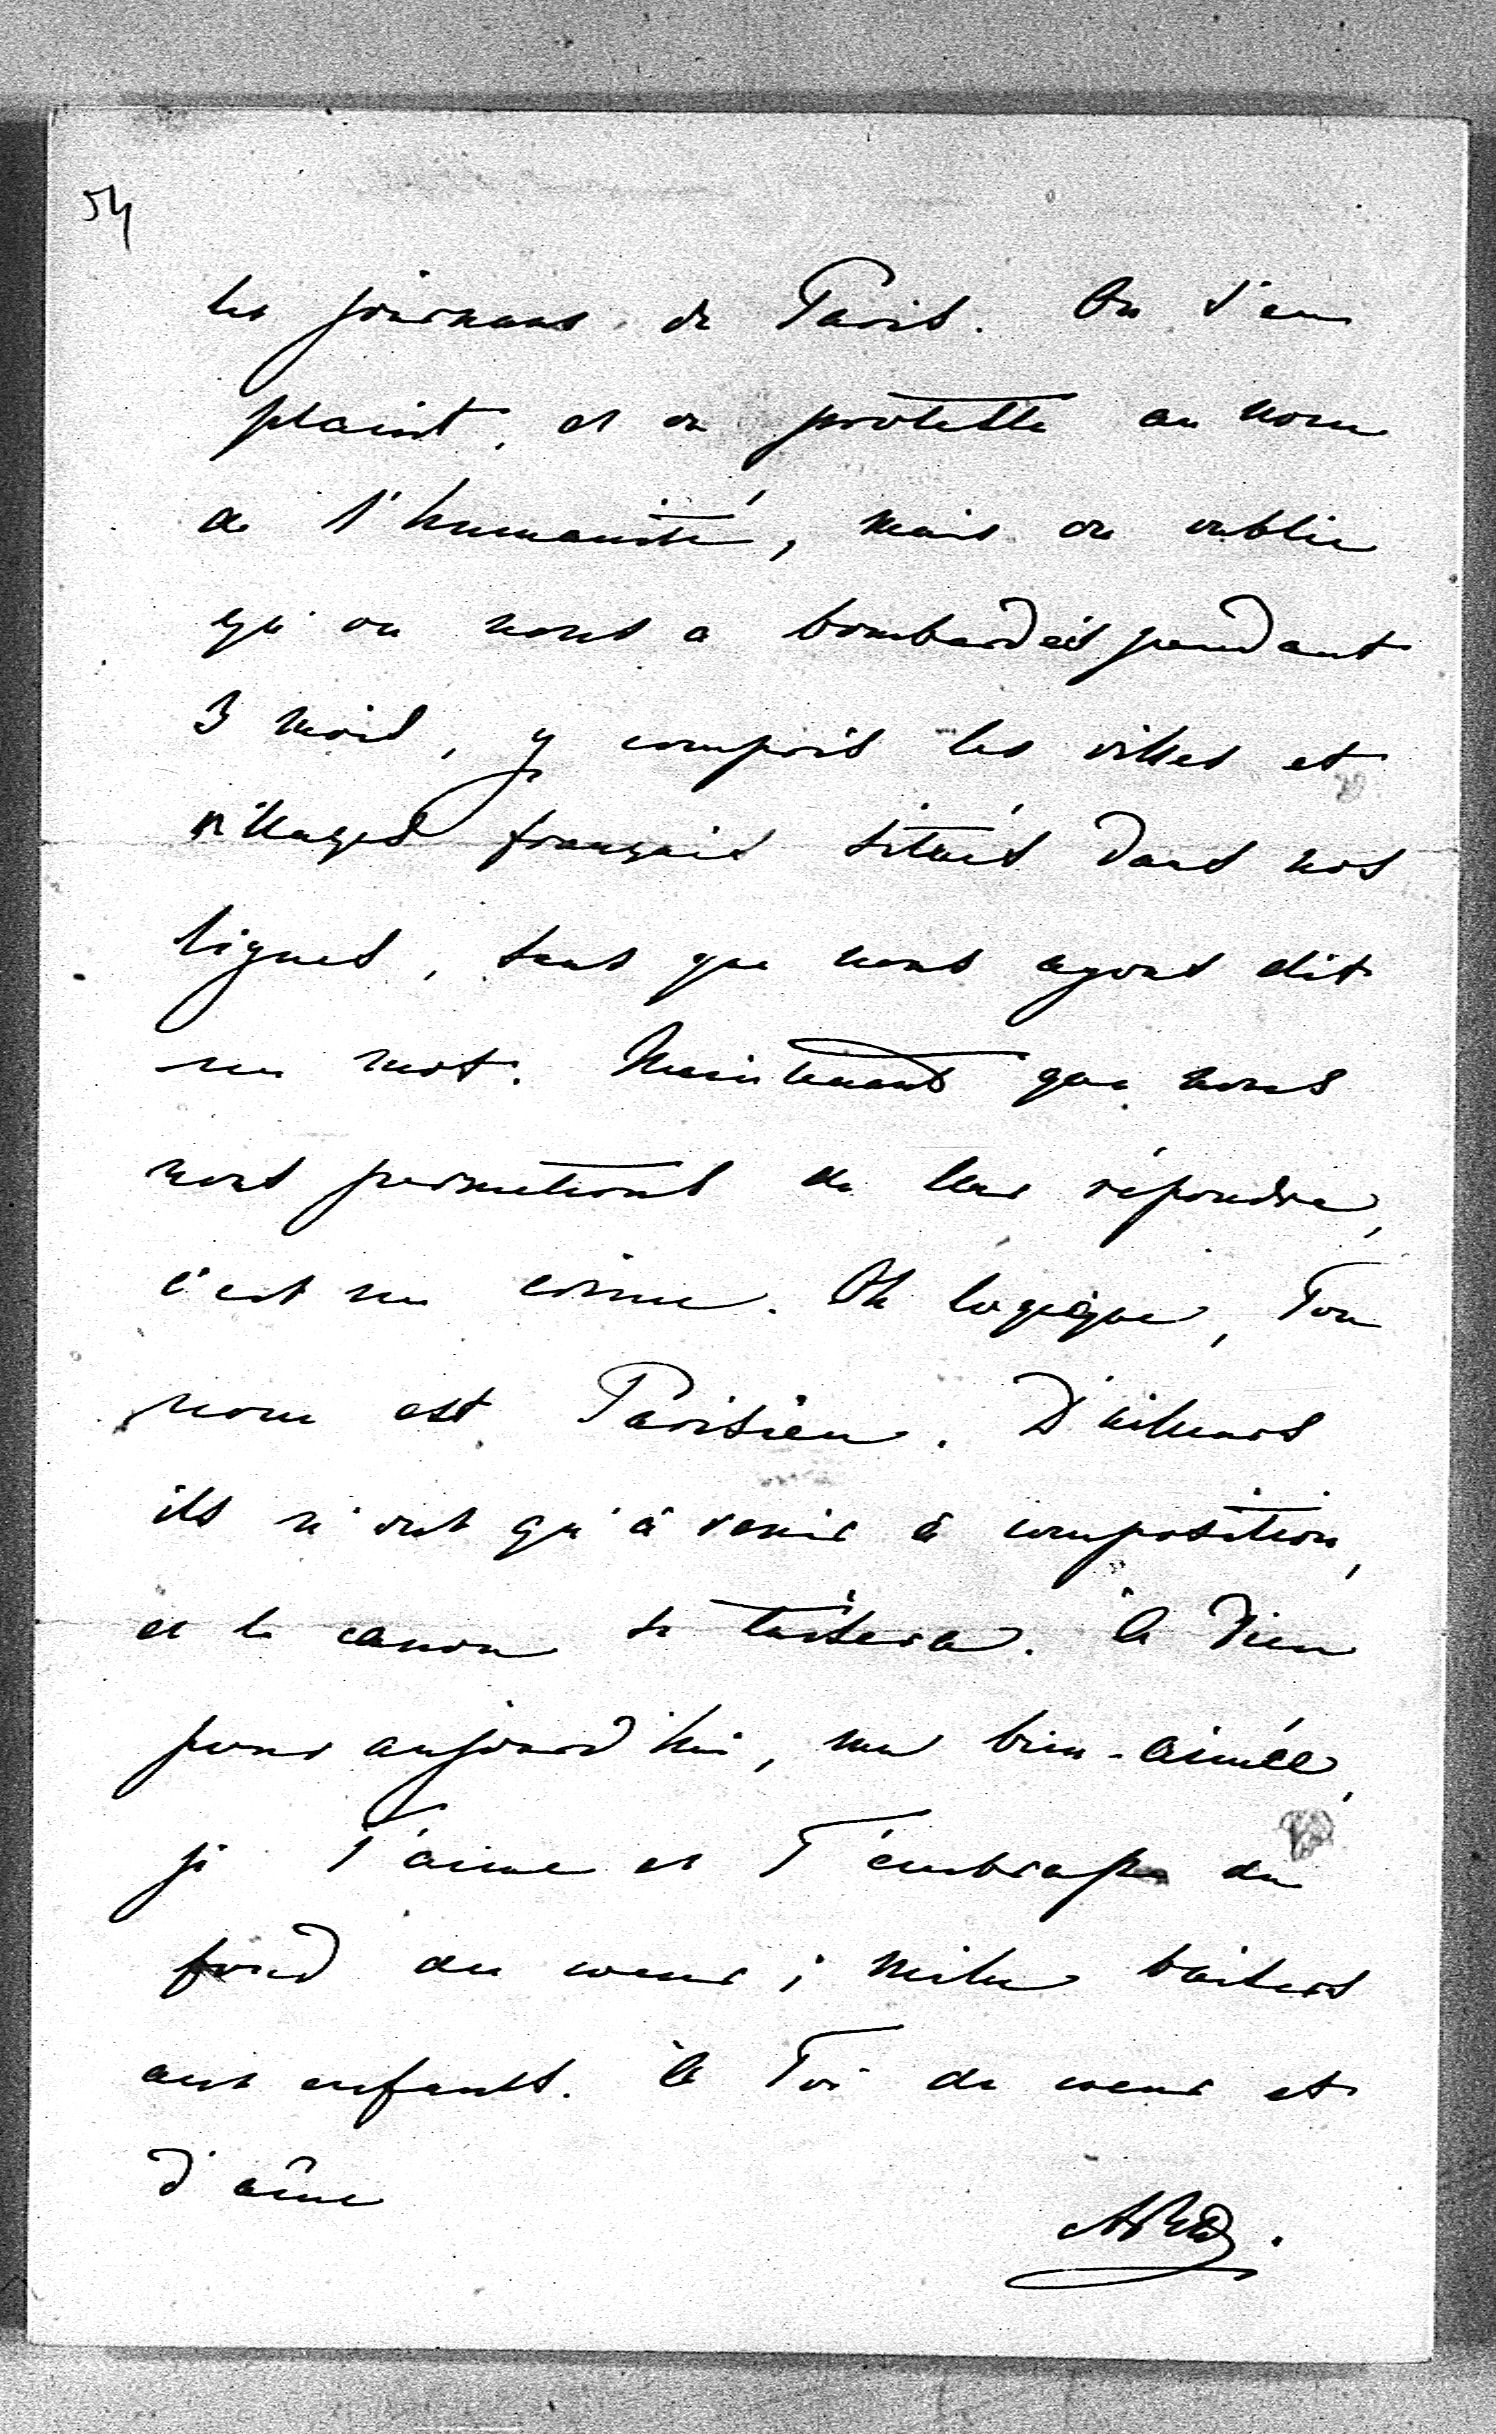 54
les journaux de Paris. On s'en
plaint, et on proteste au nom
de l'humanité, mais on oublie
qu'on nous a bombardés pendant
3 mois, y compris les villes et
villages français situés dans nos
lignes, sans que nous ayons dit
un mot. Maintenant que nous
nous permettons de leur répondre,
c'est un crime. Oh logique, Ton
nom est Parisien. D'ailleurs
ils n'ont qu'à venir à composition,
et le canon se taisera. à Dieu
pour aujourd'hui, ma bien-aimée,
je T'aime et T'embrasse du
fond du coeur; mille baisers
aux enfants. à Toi de coeur et
d'âme